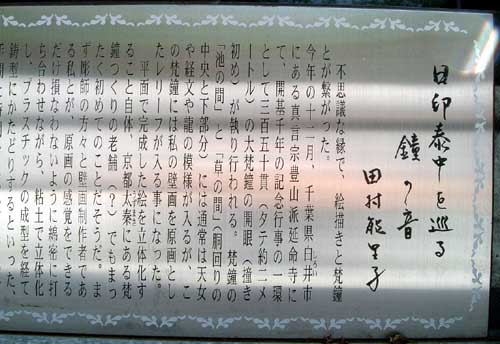 日印泰中を巡る
鐘の音
田村能里子
不思議な縁で、絵描きと梵鐘
とが繋がった。
今年の十一月、千葉県白井市
にある真言宗豊山派延命寺に
て、開基千年の記念行事の一環
として三百五十貫(タテ約二メ
ートル)の大梵鐘の開眼(撞き
初め)が執り行われる。梵鐘の
「池の間」と「草の間」(胴回りの
中央と下部分)には通常は天女
や経文や龍の模様が入るが、こ
の梵鐘には私の壁画を原画とし
たレリーフが入る事になった。
平面で完成した絵を立体化す
ること自体、京都太秦にある梵
鐘つくりの老舗(?)でもまっ
たく初めてのことだそうだ。ま
ず彫師の方々と壁画制作者であ
る私とが、原画の感覚をできる
だけ損なわないように綿密に打
ち合わせながら、粘土で立体化
し、プラスチックの成型を経て
鋳型にかたどりするといった、